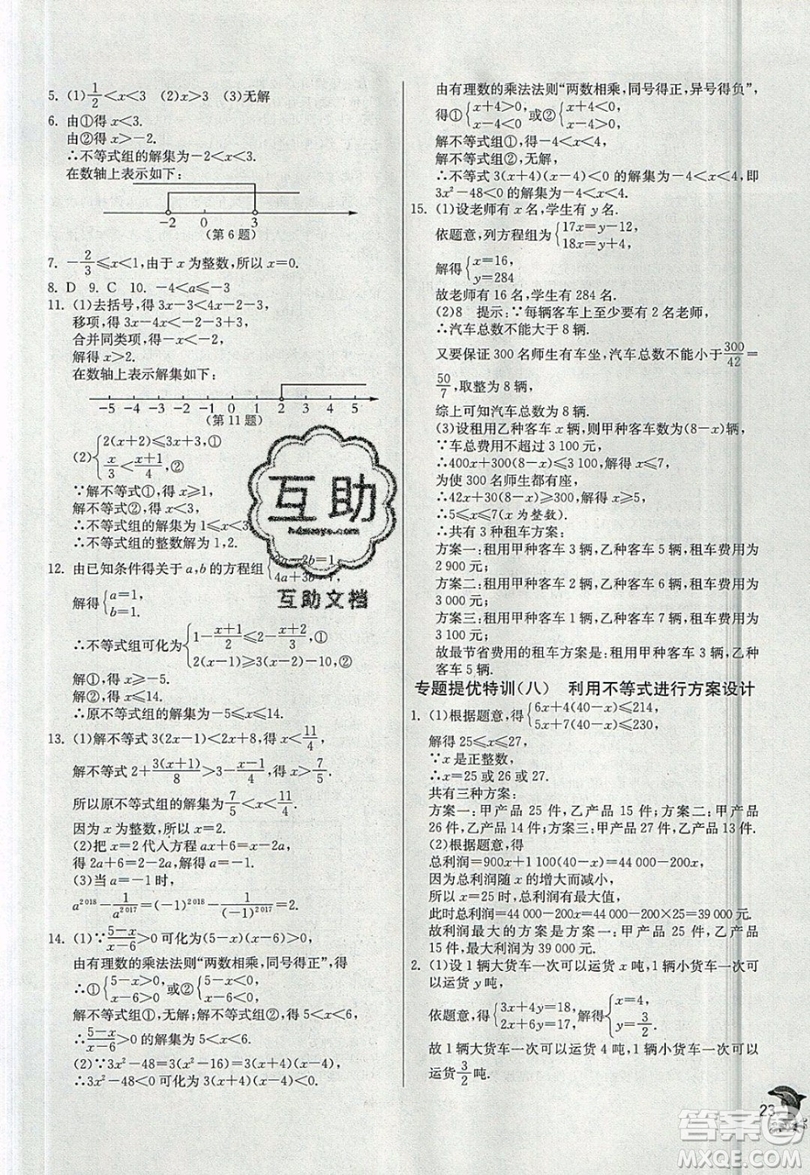 5. (1)1/2<x<3 (2)x>3 (3)无解
6. 由①得 x<3.
由②得 x>-2.
∴不等式组的解集为-2<x<3.
在数轴上表示如下:
-2 0 3
(第 6 题)
7. -2/3≤x<1,由于 x 为整数,所以 x=0.
8. D 9. C 10. -4<a≤-3
11. (1)去括号,得 3x-4x+2<3,
移项,得 3x-4x<3+
合并同类项,得
解得 x>2.
在数轴上表示解集如下:
-5 -4 -3 -2 -1 0 1 2 3 4 5
(第 11 题)
(2){2(x+2)≤3x+3,①
x/3<(x+1)/4,②
∵解不等式①,得 x≥1,
解不等式②,得 x<3,
∴不等式组的解集为 1≤x<
∴不等式组的整数解为 1,2.
12. 由已知条件得关于 a,b 的方程组{ 2b=1,
4a+3b=
解得{a=1,
b=1.
∴不等式组可化为{1-(x+1)/2≤2-(x-3)/3,①
2(x-1)≥3(x-3).②
解①,得 x≥-9.
解②,得 x≤7.
∴原不等式组的解集为-9≤x≤7.
13. (1)解不等式 3(2-x)<2x+8,得
解不等式 2+3(x+1)/8>3-(x-1)/4,得 x>7/5.
所以原不等式组的解集为 7/5<x<11/4.
因为 x 为整数,所以 x=2.
(2)把 x=2 代入方程组,
得 2a+6=2-2a,解得 a=-1.
当 a=-1 时,
a²⁰¹⁸-1/a²⁰¹⁷=(-1)²⁰¹⁸-1/(-1)²⁰¹⁷=2.
14. (1)∵(5-x)/(x-6)>0 可化为(5-x)(x-6)>0,
由有理数的乘法法则“两数相乘,同号得正”,得
∴①{5-x>0, x-6>0 或②{5-x<0, x-6<0.
解不等式①,无解;解不等式②,得 5<x<6,
∴(5-x)/(x-6)>0 的解集为 5<x<6.
(2)∵3x²-48=3(x²-16)=3(x+4)(x-4),
∴3x²-48<0 可化为 3(x+4)(x-4)<0.
由有理数的乘法法则“两数相乘,同号得正,异号得负”,
得①{x+4>0, x-4<0 或②{x+4<0, x-4>0.
解不等式组①,得-4<x<4.
解不等式组②,无解,
∴不等式 3(x+4)(x-4)<0 的解集为-4<x<4,即
3x²-48<0 的解集为-4<x<4.
15. (1)设老师有 x 名,学生有 y 名.
依题意,列方程组为{17x=y-12,
18x=y+4,
解得{x=16,
y=284
故老师有 16 名,学生有 284 名.
(2)8 提示:∵每辆客车上至少要有 2 名老师,
∴汽车总数不能大于 8 辆.
又要保证 300 名师生有车坐,汽车总数不能小于300/42=
50/7,取整为 8 辆,
综上可知汽车总数为 8 辆.
(3)设租用乙种客车 x 辆,则甲种客车数为(8-x)辆.
∵车总费用不超过 3 100 元,
∴400x+300(8-x)≤3 100,解得 x≤7.
为使 300 名师生都有座,
∴42x+30(8-x)≥300,解得 x≥5.
∴5≤x≤7(x 为整数).
∴共有 3 种租车方案:
方案一:租用甲种客车 3 辆,乙种客车 5 辆,租车费用为
2 900 元;
方案二:租用甲种客车 2 辆,乙种客车 6 辆,租车费用为
3 000 元;
方案三:租用甲种客车 1 辆,乙种客车 7 辆,租车费用为
3 100 元.
故最节省费用的租车方案是:租用甲种客车 3 辆,乙种
客车 5 辆.
专题提优特训(八) 利用不等式进行方案设计
1. (1)根据题意,得{6x+4(40-x)≤214,
5x+7(40-x)≤230,
解得 25≤x≤27,
∵x 是正整数,
∴x=25 或 26 或 27.
共有三种方案:
方案一:甲产品 25 件,乙产品 15 件;方案二:甲产品
26 件,乙产品 14 件;方案三:甲产品 27 件,乙产品 13 件.
(2)根据题意,得
总利润=900x+1 100(40-x)=-200x+44 000,
因为总利润随 x 的增大而减小,
所以 x=25 时,总利润最大.
此时总利润=44 000-200×25=39 000 元,
故总利润的最大值是 39 000 元.
2. (1)设 1 辆大货车一次可以运货 x 吨,1 辆小货车一次可
以运货 y 吨,
依题意,得{3x+4y=18,
2x+6y=17,
解得{x=4,
y=3/2.
故 1 辆大货车一次可以运货 4 吨,1 辆小货车一次可以
运货3/2吨.
23
互助
互助文档
答案
MXQE.COM